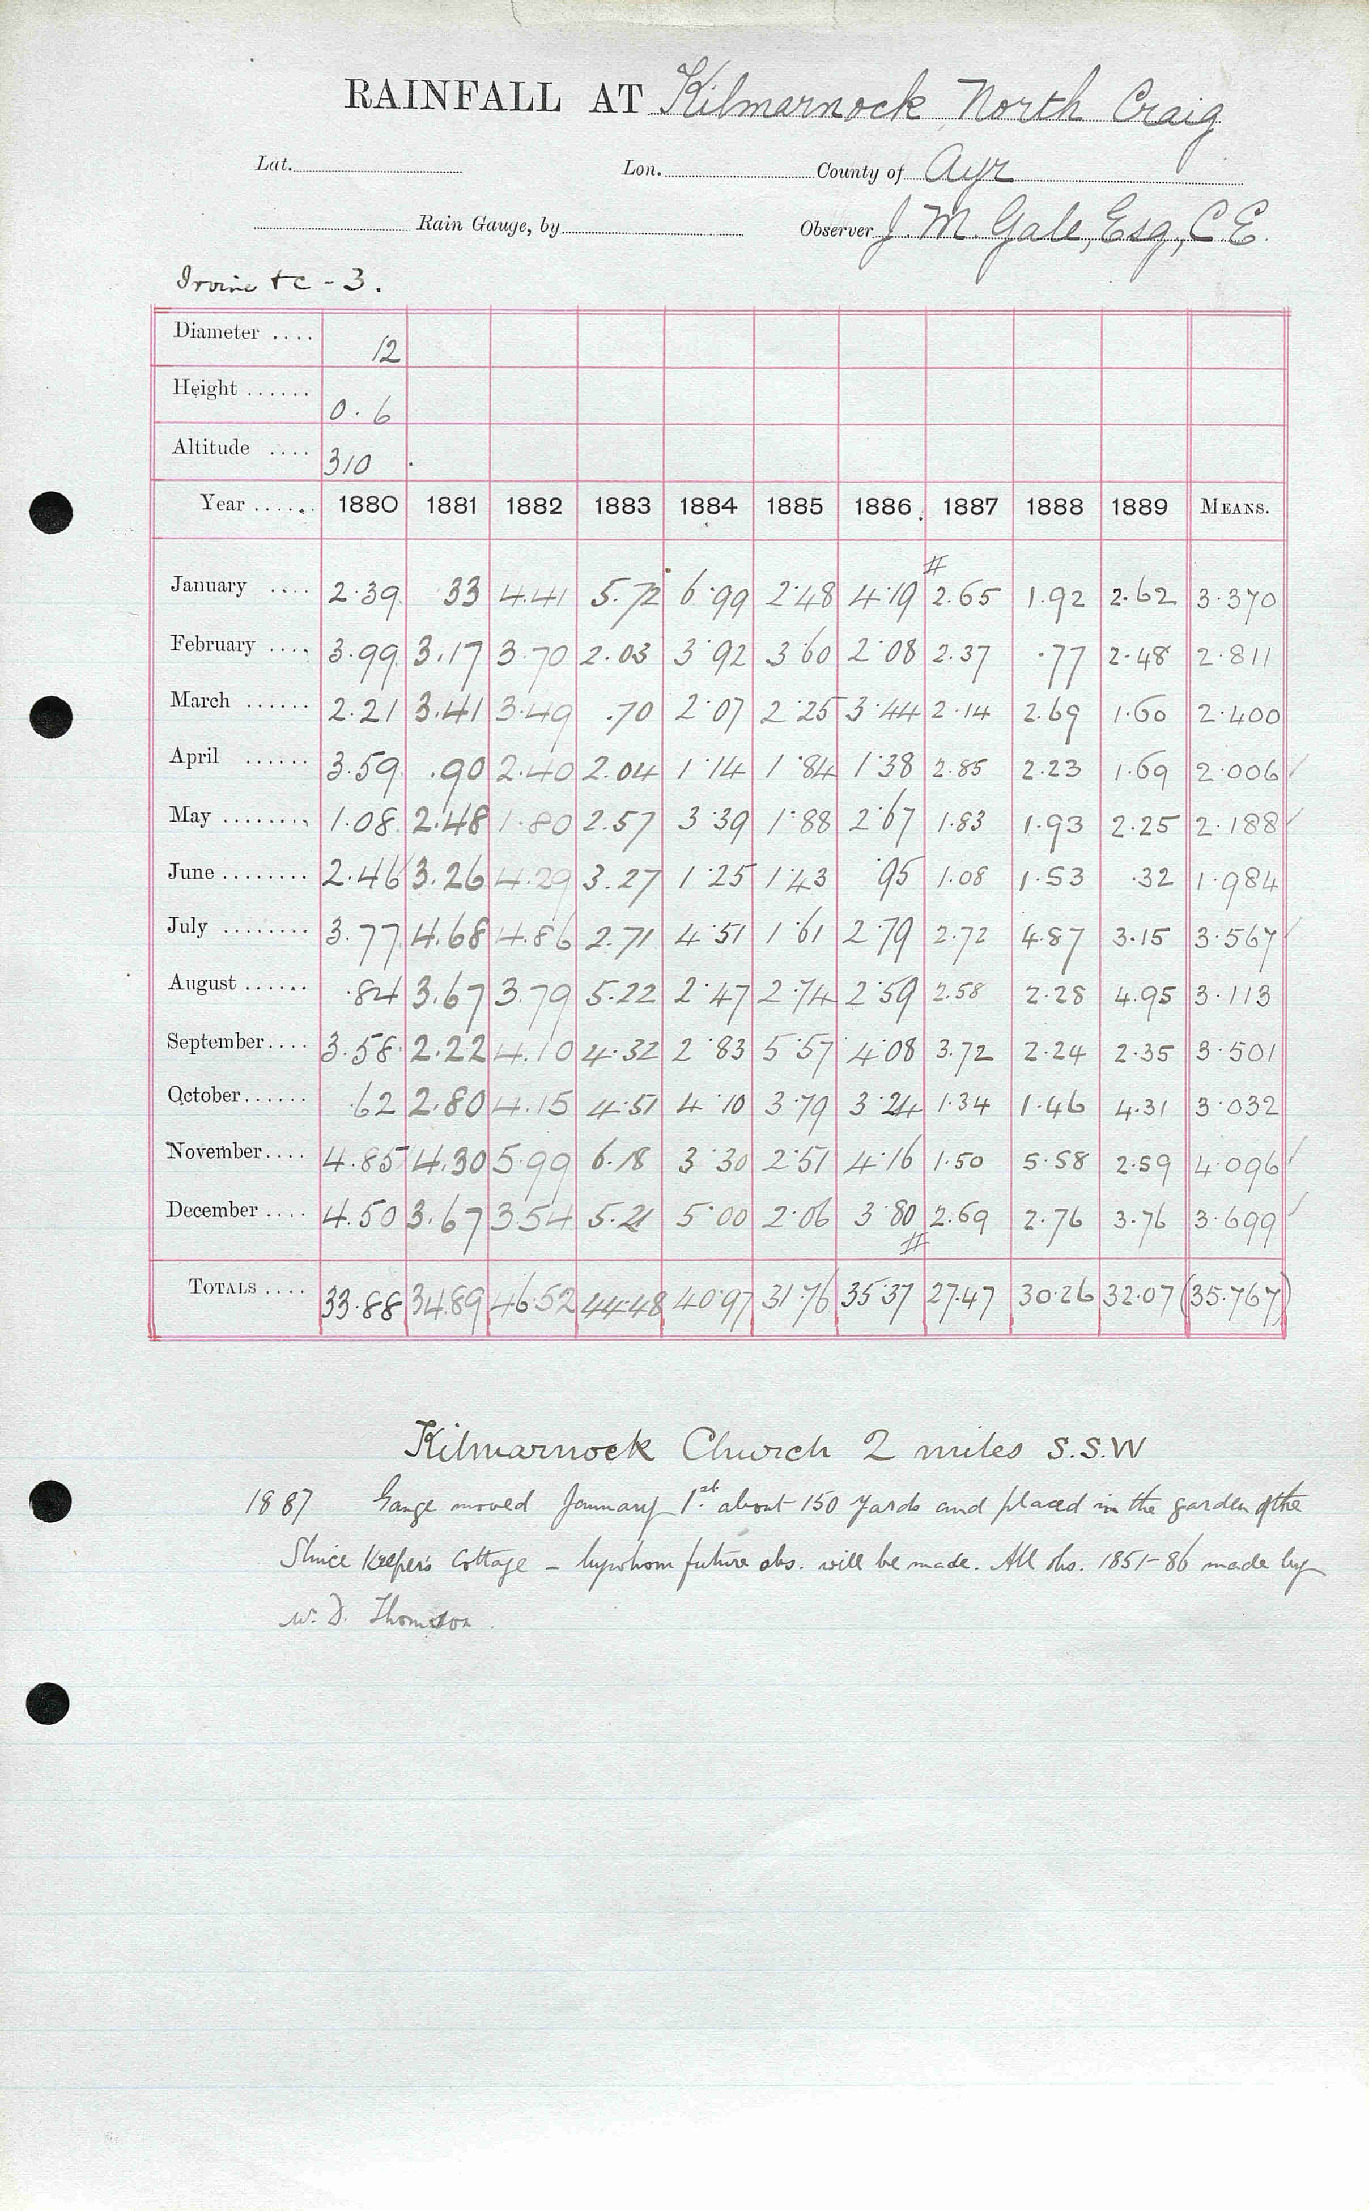 RAINFALL AT Kilmarnock North Craig
Lat. Lon. County of Ayr
Rain Gauge, by Observer J. M. Gale, Esq., C.E.
Irvine &c - 3.
Diameter .... 12
Height ...... 0.6
Altitude .... 310
Year ..... 1880 1881 1882 1883 1884 1885 1886 1887 1888 1889 MEANS.
#
January .... 2.39 33 4.41 5.72 6.99 2.48 4.19 2.65 1.92 2.62 3.370
February .... 3.99 3.17 3.70 2.03 3.92 3.60 2.08 2.37 .77 2.48 2.811
March ...... 2.21 3.41 3.49 .70 2.07 2.25 3.44 2.14 2.69 1.60 2.400
April ...... 3.59 .90 2.40 2.04 1.14 1.84 1.38 2.85 2.23 1.69 2.006 /
May ........ 1.08 2.48 1.80 2.57 3.39 1.88 2.67 1.83 1.93 2.25 2.188 /
June ........ 2.46 3.26 4.29 3.27 1.25 1.43 .95 1.08 1.53 .32 1.984
July ........ 3.77 4.68 4.86 2.71 4.51 1.61 2.79 2.72 4.87 3.15 3.567 /
August ...... .84 3.67 3.79 5.22 2.47 2.74 2.59 2.58 2.28 4.95 3.113
September.... 3.58 2.22 4.10 4.32 2.83 5.57 4.08 3.72 2.24 2.35 3.501
October...... .62 2.80 4.15 4.51 4.10 3.79 3.24 1.34 1.46 4.31 3.032
November.... 4.85 4.30 5.99 6.18 3.30 2.51 4.16 1.50 5.58 2.59 4.096 /
December .... 4.50 3.67 3.54 5.21 5.00 2.06 3.80 2.69 2.76 3.76 3.699 /
#
TOTALS .... 33.88 34.89 46.52 44.48 40.97 31.76 35.37 27.47 30.26 32.07 (35.767)
Kilmarnock Church 2 miles S.S.W
1887 Gauge moved January 1st about 150 yards and placed in the garden of the
Sluice Keeper's Cottage - by whom future obs. will be made. All obs. 1851-86 made by
W. D. Thomson.